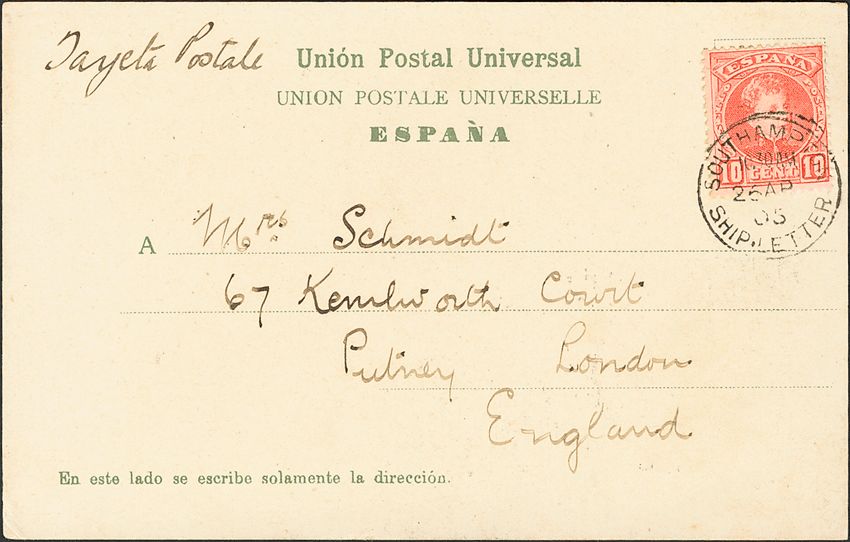 Tarjeta Postale
Unión Postal Universal
UNION POSTALE UNIVERSELLE
ESPAÑA
ESPAÑA
10 CENT 10
SOUTHAMPTON
26 AP
05
SHIP-LETTER
A Mrs Schmidt
67 Kenilworth Court
Putney London
England
En este lado se escribe solamente la dirección.